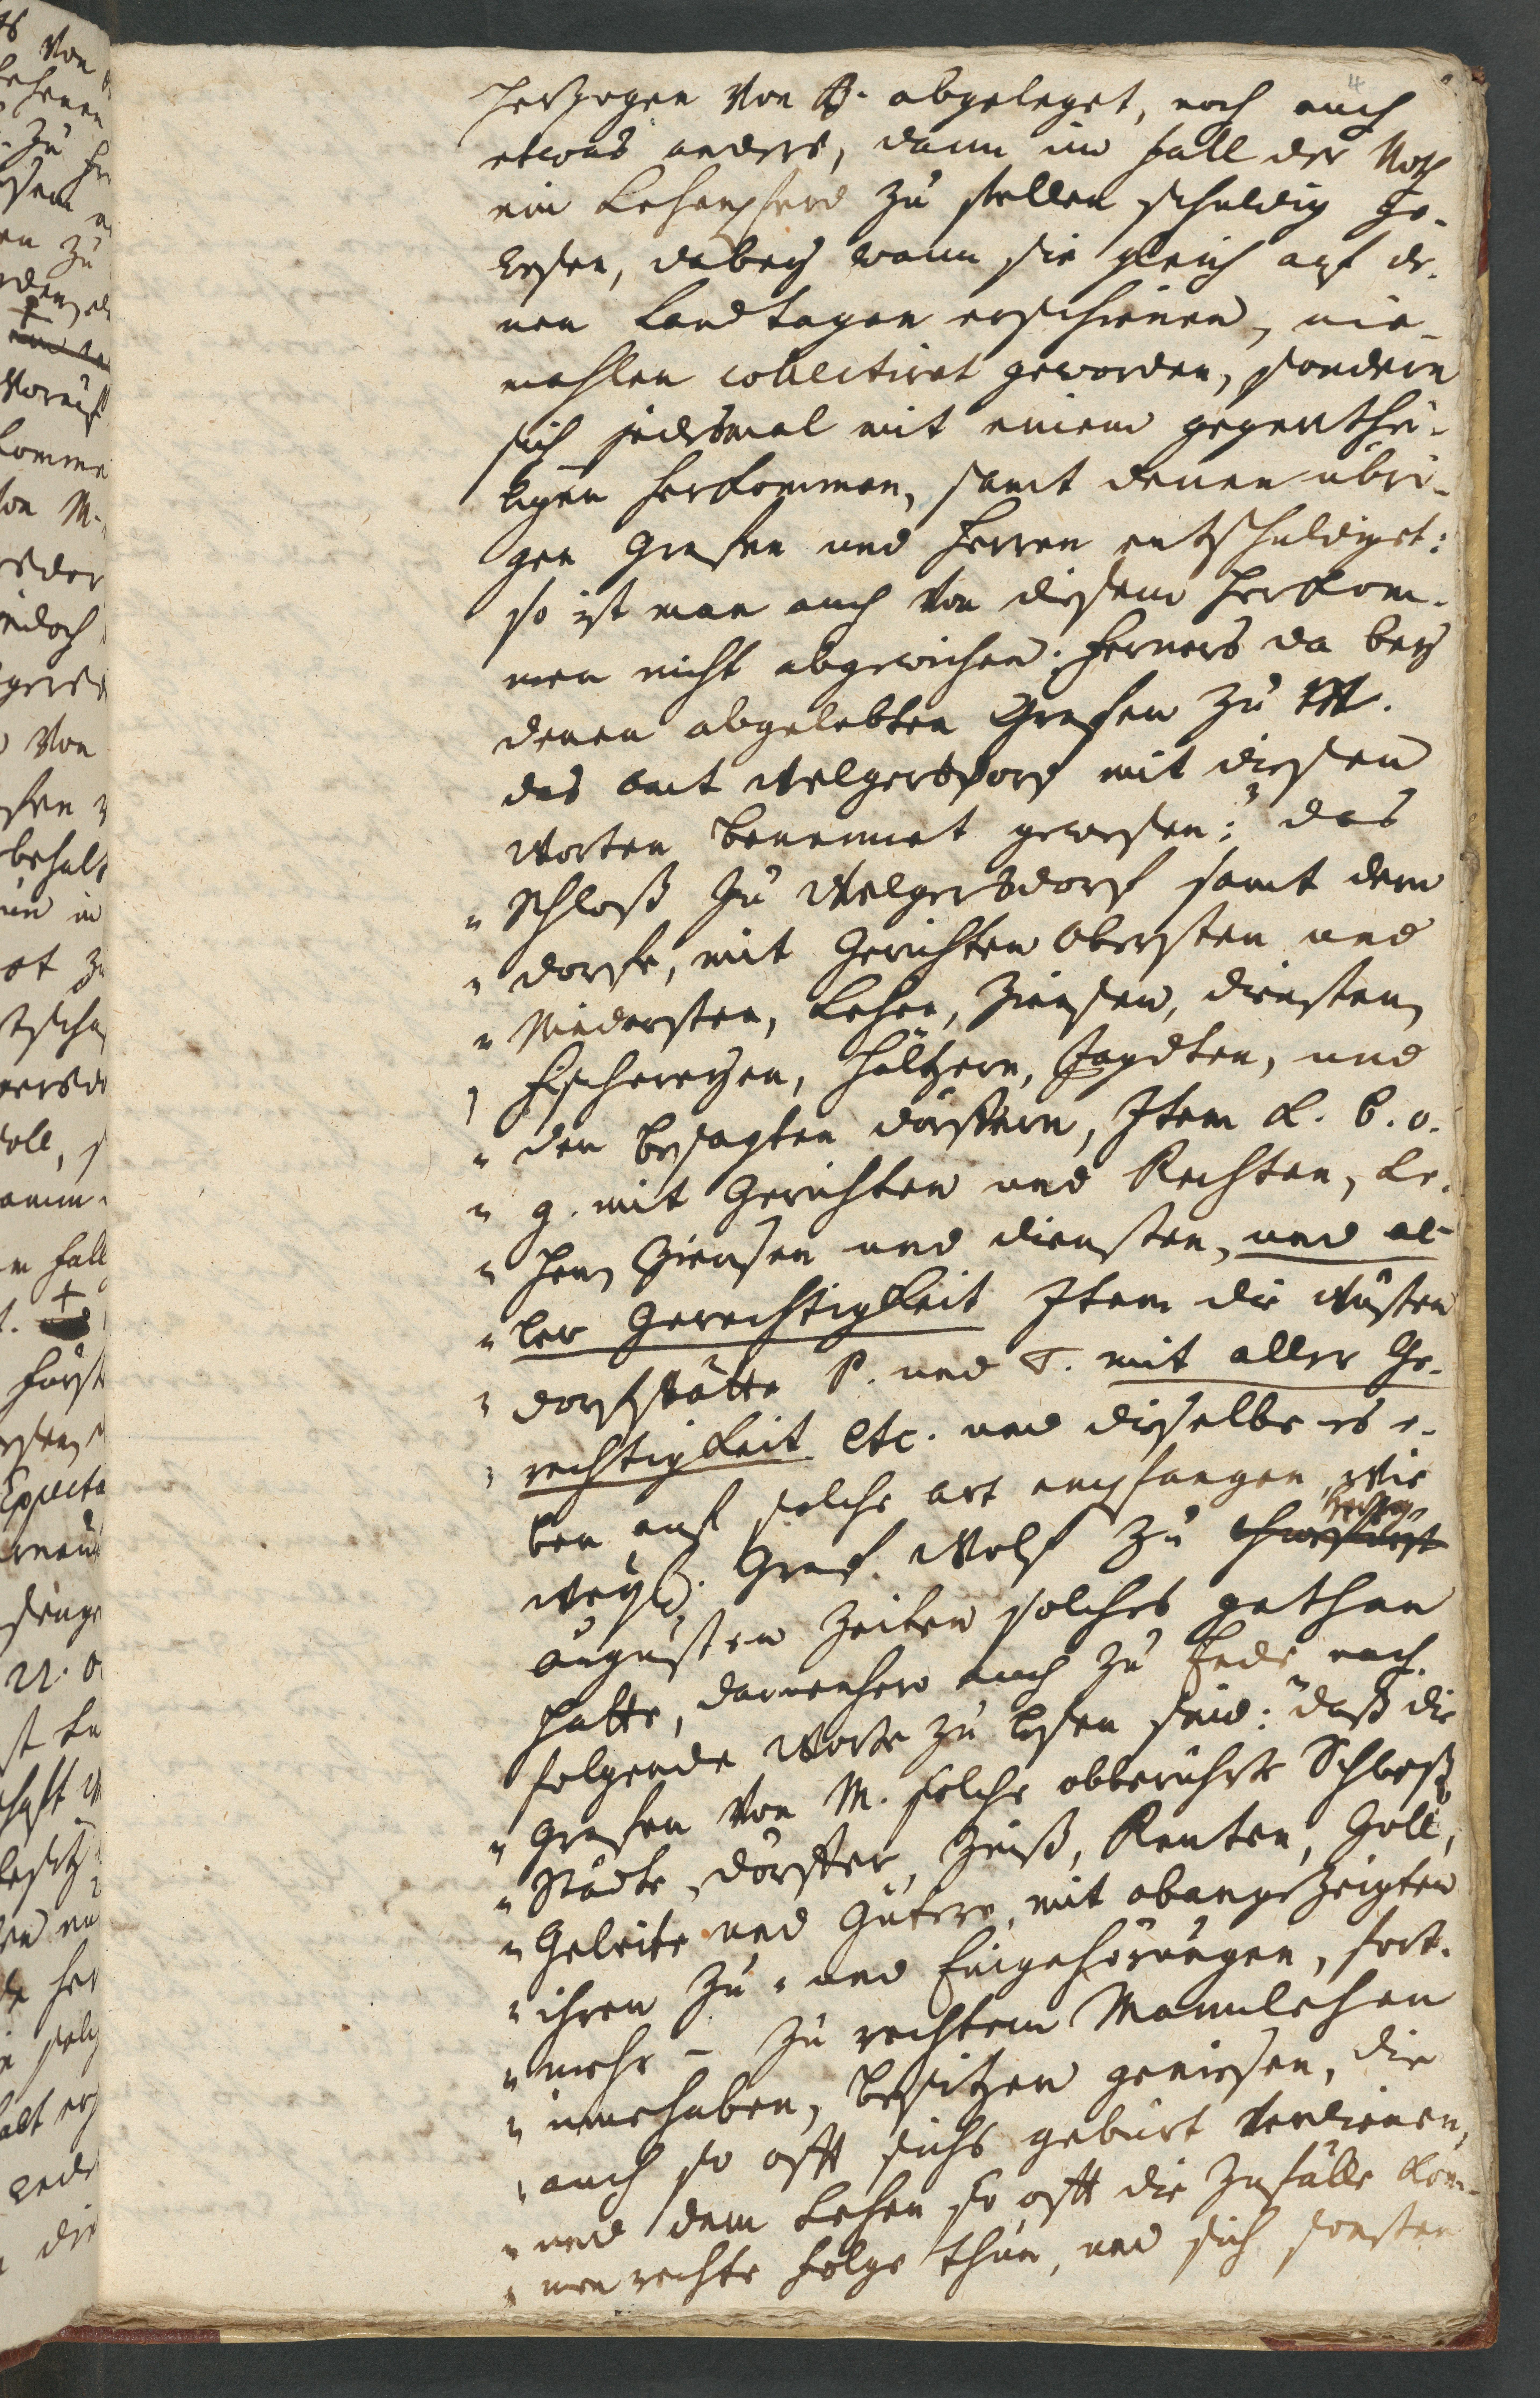 4
Herzogen von B. abgeleget, noch auch
etwas anders, dann im fall der Noth
ein Lehenpferd zu stellen schuldig ge-
wesen, dabey wann sie gleich auf de-
nen Landtagen erschienen, nie-
mahlen collectiret geworden, sondern
sich jedesmal mit einem gegenthei-
ligen herkommen, samt denen übri-
gen Grafen und Herren entschuldiget:
so ist man auch von diesem Herkom-
men nicht abgewichen. ferners da bey
denen abgelebten Grafen zu M.
das amt Welgersdorf mit diesen
Worten benennet gewesen: das
" Schloß zu Welgersdorf samt dem
" dorfe, mit Gerichten Obersten und
" Niedersten, Lehen, Zinsen, diensten
" Fischereyen, Höltzern, Jagdten, und
" den besagten dörffern, Item L. B. o.
" g. mit Gerichten und Rechten, Le-
" hen Zinsen und diensten, und al-
" ler Gerechtigkeit Item die Wüsten
" dorfstätte P. und T. mit aller Ge-
" rechtigkeit etc. und dieselbe es e-
ben auf solche art empfangen, wie
weyl. Graf Wolf zu Churfürst
Augusten Zeiten solches gethan
hatte, dannenhero auch zu Ende nach-
folgende Worte zu lesen sind: " daß die
" Grafen von M. solche obberührte Schloß
" Städte, dörffer, Zinß, Renten, Zoll,
" Geleite und Gütern, mit obangezeigten
" ihren Zu- und Eingehörungen, fort-
" mehr - zu rechtem Mannlehen
" innehaben, besitzen geniesen, die
" auch so offt sichs gebürt verdienen,
" und dem Lehen so offt die Zufälle kom-
" men rechte folge thun, und sich sonsten